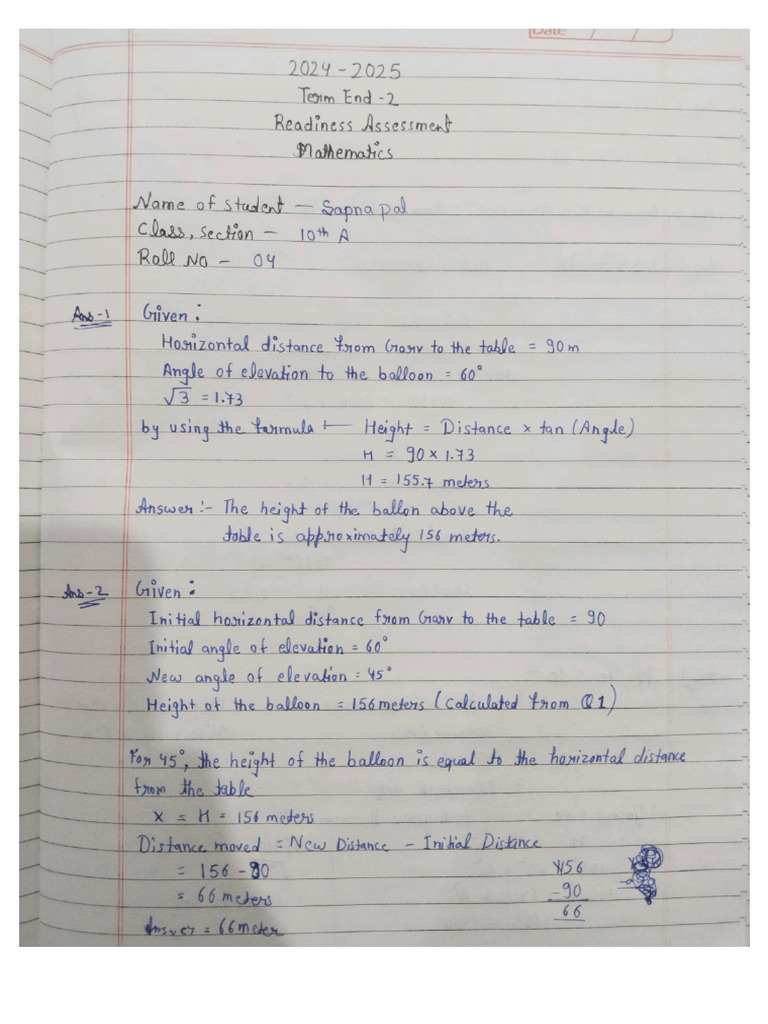 Date / /
2024-2025
Term End-2
Readiness Assessment
Mathematics
Name of student - Sapna pal
Class, section - 10th A
Roll No - 04
Ans-1 Given :
Horizontal distance from Garv to the table = 90 m
Angle of elevation to the balloon = 60°
√3 = 1.73
by using the formula :- Height = Distance × tan (Angle)
H = 90 × 1.73
H = 155.7 meters
Answer :- The height of the ballon above the
table is approximately 156 meters.
Ans-2 Given :
Initial horizontal distance from Garv to the table = 90
Initial angle of elevation = 60°
New angle of elevation = 45°
Height of the balloon = 156 meters (Calculated from Q1)
For 45°, the height of the balloon is equal to the horizontal distance
from the table
x = H = 156 meters
Distance moved = New Distance - Initial Distance
= 156 - 90
= 66 meters
Answer = 66 meter
156
- 90
66